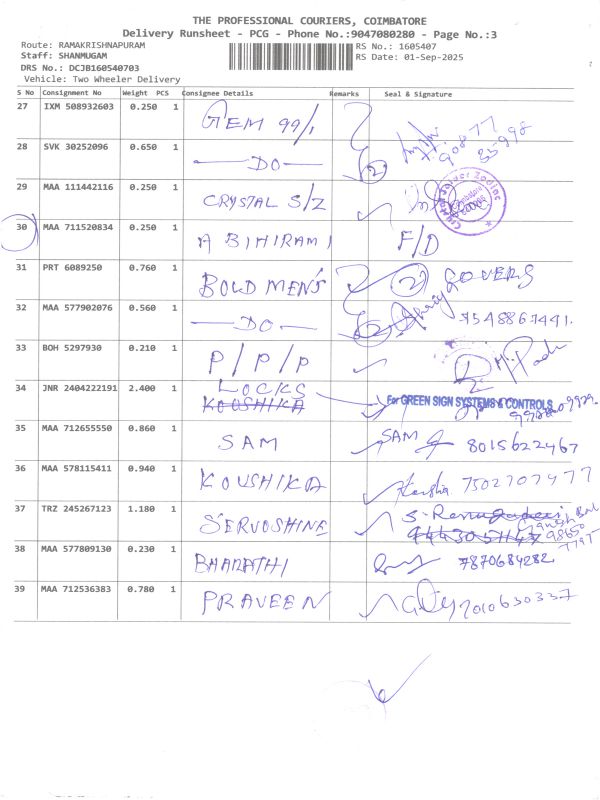 THE PROFESSIONAL COURIERS, COIMBATORE
Delivery Runsheet - PCG - Phone No.:9047080280 - Page No.:3
Route: RAMAKRISHNAPURAM RS No.: 1605407
Staff: SHANMUGAM RS Date: 01-Sep-2025
DRS No.: DCJB160540703
Vehicle: Two Wheeler Delivery
S No Consignment No Weight PCS Consignee Details Remarks Seal & Signature
27 IXM 508932603 0.250 1 GEM 99/1 90877
35998
28 SVK 30252096 0.650 1 — DO — 2
29 MAA 111442116 0.250 1 CRYSTAL S/Z
30 MAA 711520834 0.250 1 ABIHIRAMI F/D
31 PRT 6089250 0.760 1 BOLD MEN'S 2 GOVERS
32 MAA 577902076 0.560 1 — DO — 2 7548867441.
33 BOH 5297930 0.210 1 P/P/P
34 JNR 2404222191 2.400 1 LOCKS
KOUSHIKA For GREEN SIGN SYSTEMS & CONTROLS
35 MAA 712655550 0.860 1 SAM SAM 8015622467
36 MAA 578115411 0.940 1 KOUSHIKA 7502707477
37 TRZ 245267123 1.180 1 SERVOSHINE
38 MAA 577809130 0.230 1 BHARATHI 7870684282
39 MAA 712536383 0.780 1 PRAVEEN 7010630337